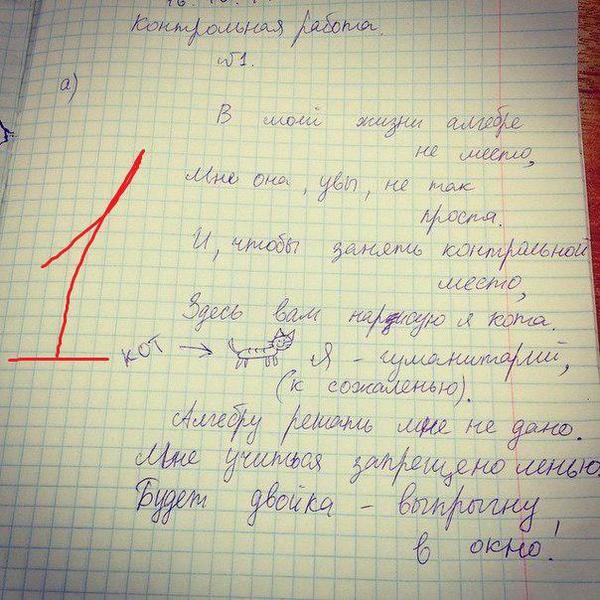 Контрольная работа.
№1.
а)
В моей жизни алгебре
не место,
Мне она, увы, не так
проста.
И, чтобы занять контрольной
место,
Здесь вам нарисую я кота.
кот → Я - гуманитарий,
(к сожаленью).
Алгебру решать мне не дано.
Мне учиться запрещено ленью.
Будет двойка - выпрыгну
в окно!
1